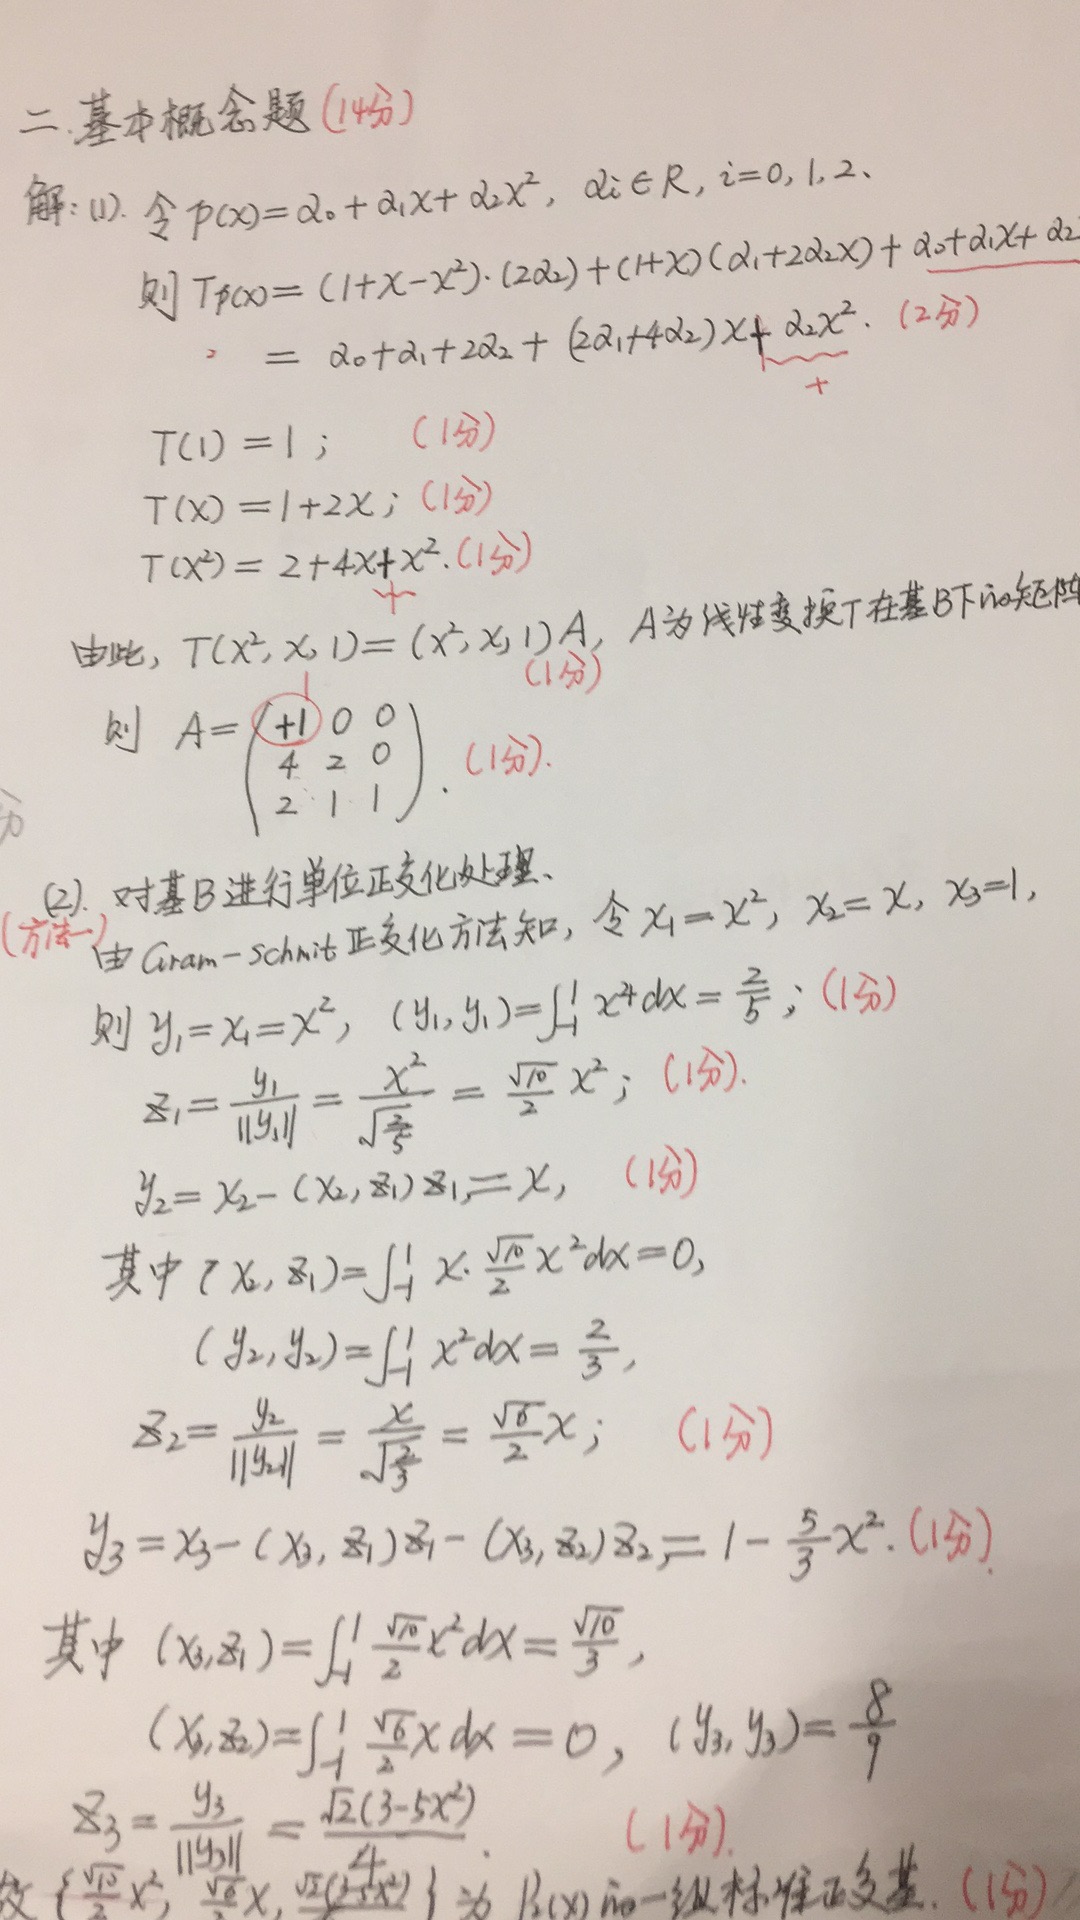 二.基本概念题(14分)
解:(1). 令p(x)=α₀+α₁x+α₂x², αi∈R, i=0,1,2、
则 Tp(x)=(1+x-x²)·(2α₂)+(1+x)(α₁+2α₂x)+α₀+α₁x+α₂
= α₀+α₁+2α₂+(2α₁+4α₂)x+α₂x². (2分)
+
T(1)=1; (1分)
T(x)=1+2x; (1分)
T(x²)=2+4x+x². (1分)
+
由此, T(x²,x,1)=(x²,x,1)A, A为线性变换T在基B下的矩阵
(1分)
1
则 A=(+1 0 0
4 2 0
2 1 1). (1分).
分
(2). 对基B进行单位正交化处理、
(方法一) 由Gram-Schmit正交化方法知, 令x₁=x², x₂=x, x₃=1,
则 y₁=x₁=x², (y₁,y₁)=∫₋₁¹ x⁴dx=2/5; (1分)
z₁=y₁/||y₁||=x²/√(2/5)=√10/2 x²; (1分).
y₂=x₂-(x₂,z₁)z₁,=x, (1分)
其中(x₂,z₁)=∫₋₁¹ x·√10/2 x²dx=0,
(y₂,y₂)=∫₋₁¹ x²dx=2/3,
z₂=y₂/||y₂||=x/√(2/3)=√6/2 x; (1分)
y₃=x₃-(x₃,z₁)z₁-(x₃,z₂)z₂,=1-5/3 x². (1分).
其中 (x₃,z₁)=∫₋₁¹ √10/2 x²dx=√10/3,
(x₃,z₂)=∫₋₁¹ √6/2 x dx=0, (y₃,y₃)=8/9
z₃=y₃/||y₃||=√2(3-5x²)/4. (1分).
故{√10/2 x², √6/2 x, √2(3-5x²)/4}为P₂(x)的一组标准正交基. (1分)